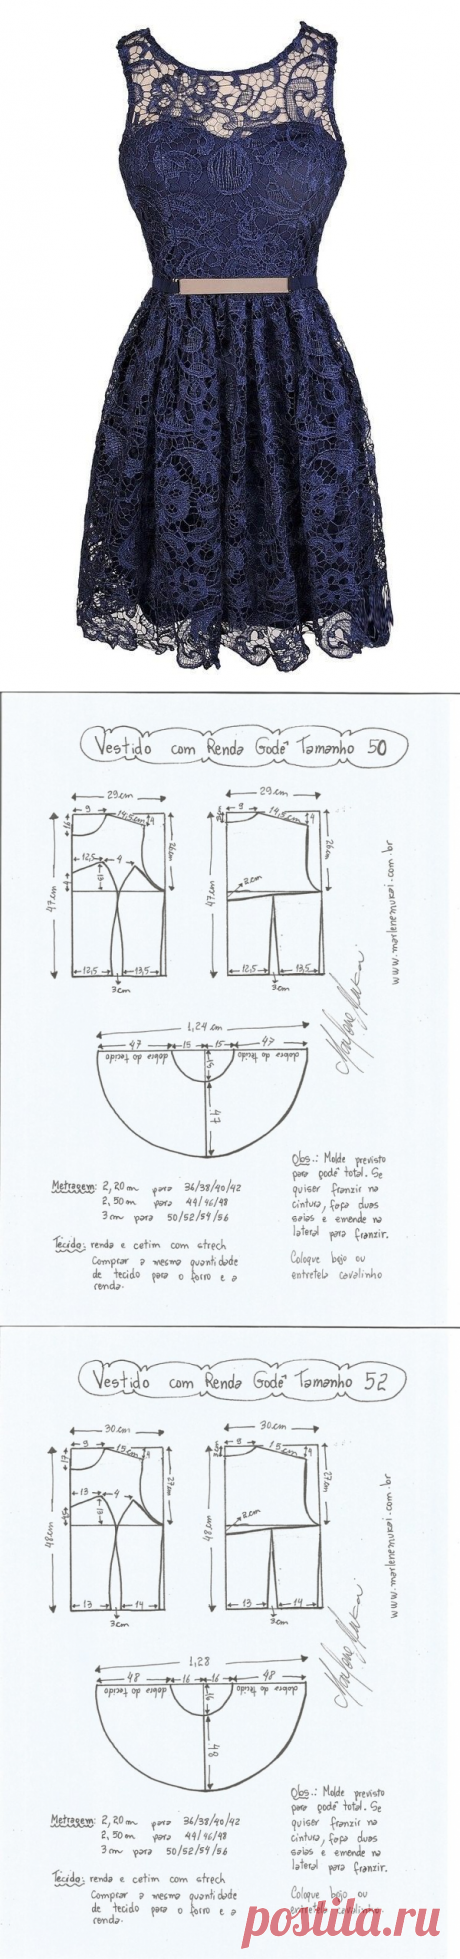 Vestido com Renda Godê Tamanho 50
29cm
9
14,5cm
4
16
26cm
12,5
4
13
4
47cm
12,5
13,5
3cm
29cm
9
14,5cm
4
26cm
2cm
47cm
12,5
13,5
3cm
www.marlenemukai.com.br
1,24 cm
47
15
15
47
dobra do tecido
dobra do tecido
15
47
Metragem: 2,20m para 36/38/40/42
2,50m para 44/46/48
3 cm para 50/52/54/56
Tecido: renda e cetim com strech
Comprar a mesma quantidade
de tecido para o forro e a
renda.
Obs.: Molde previsto
para godê total. Se
quiser franzir na
cintura, faça duas
saias e emende na
lateral para franzir.
Coloque bojo ou
entretela cavalinho
Vestido com Renda Godê Tamanho 52
30cm
9
15cm
4
17
27cm
13
4
13
48cm
13
14
3cm
30cm
9
15cm
4
27cm
2cm
48cm
13
14
3cm
www.marlenemukai.com.br
1,28
48
16
16
48
dobra do tecido
dobra do tecido
16
48
Metragem: 2,20m para 36/38/40/42
2,50m para 44/46/48
3 cm para 50/52/54/56
Tecido: renda e cetim com strech
Comprar a mesma quantidade
de tecido para o forro e a
renda.
Obs.: Molde previsto
para godê total. Se
quiser franzir na
cintura, faça duas
saias e emende na
lateral para franzir.
Coloque bojo ou
entretela cavalinho.
postila.ru